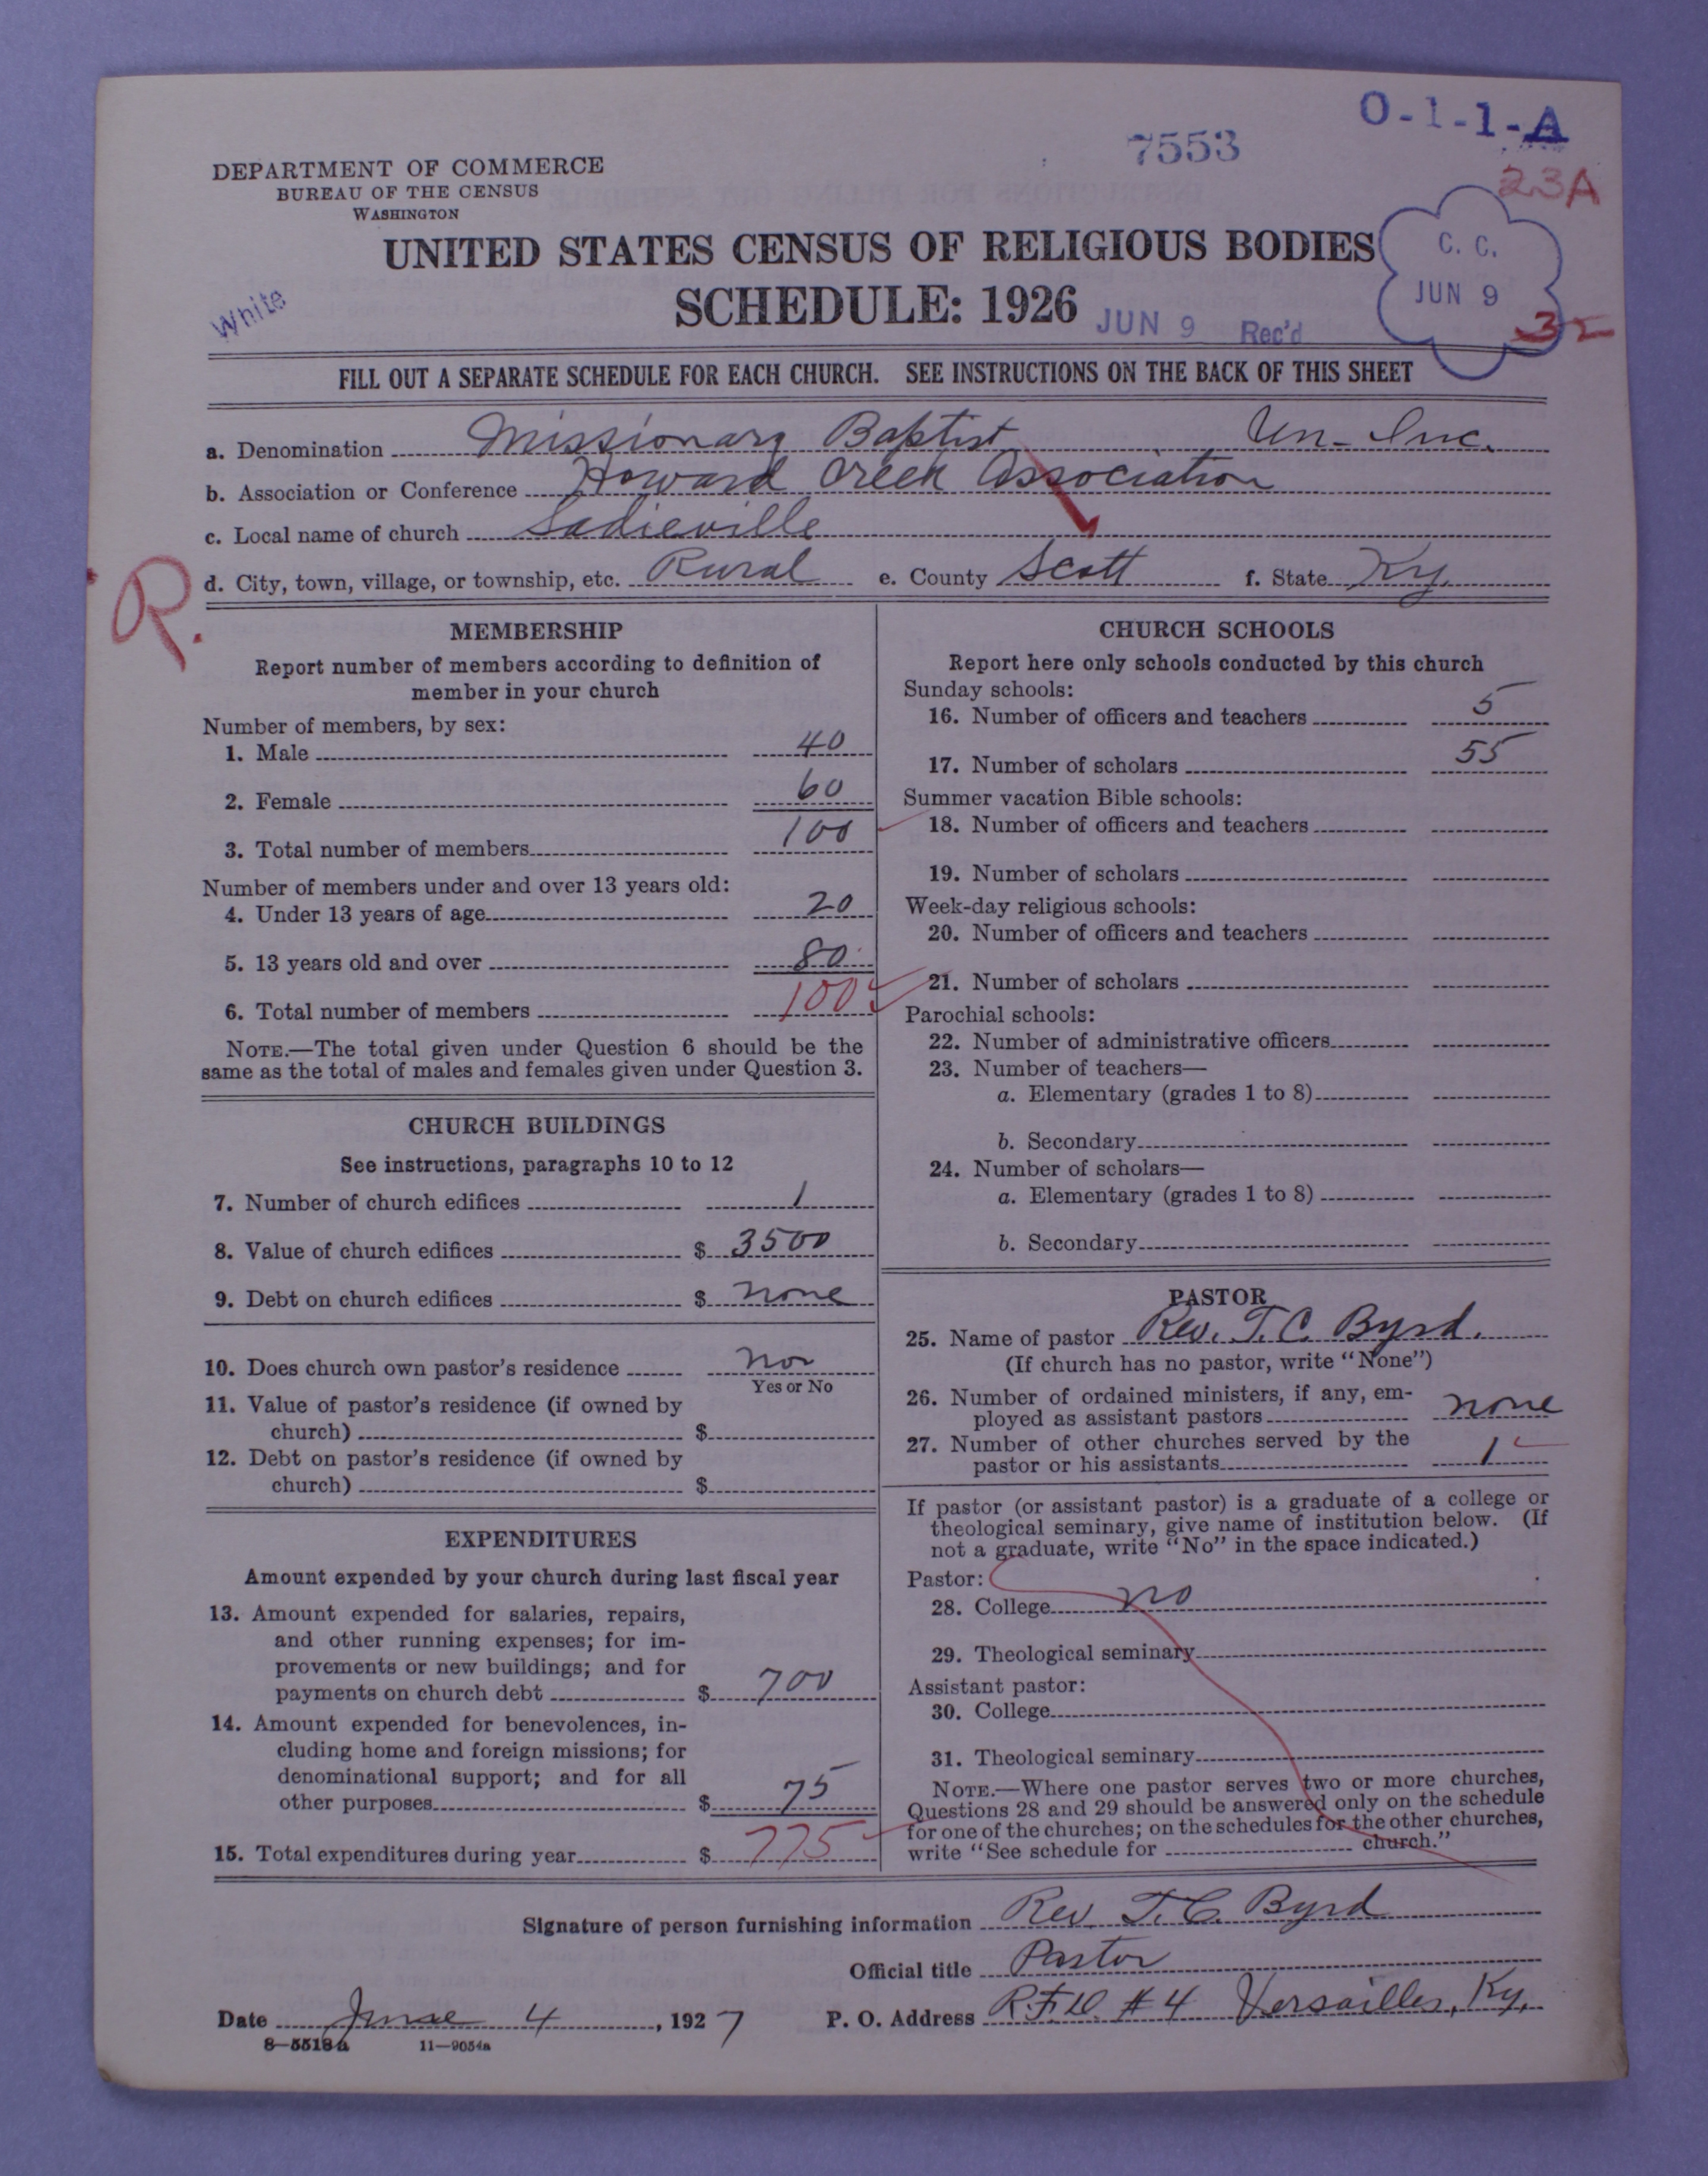 O-1-1-A
7553
23A
DEPARTMENT OF COMMERCE
BUREAU OF THE CENSUS
WASHINGTON
UNITED STATES CENSUS OF RELIGIOUS BODIES
SCHEDULE: 1926
White
JUN 9 Rec'd
C. C.
JUN 9
FILL OUT A SEPARATE SCHEDULE FOR EACH CHURCH. SEE INSTRUCTIONS ON THE BACK OF THIS SHEET
a. Denomination Missionary Baptist Un-Inc.
b. Association or Conference Howard Creek Association
c. Local name of church Sadieville
R.
d. City, town, village, or township, etc. Rural e. County Scott f. State Ky.
MEMBERSHIP
Report number of members according to definition of
member in your church
Number of members, by sex:
1. Male 40
2. Female 60
3. Total number of members 100
Number of members under and over 13 years old:
4. Under 13 years of age 20
5. 13 years old and over 80
6. Total number of members 100
NOTE.—The total given under Question 6 should be the
same as the total of males and females given under Question 3.
CHURCH BUILDINGS
See instructions, paragraphs 10 to 12
7. Number of church edifices 1
8. Value of church edifices $ 3500
9. Debt on church edifices $ none
10. Does church own pastor's residence no
Yes or No
11. Value of pastor's residence (if owned by
church) $
12. Debt on pastor's residence (if owned by
church) $
EXPENDITURES
Amount expended by your church during last fiscal year
13. Amount expended for salaries, repairs,
and other running expenses; for im-
provements or new buildings; and for
payments on church debt $ 700
14. Amount expended for benevolences, in-
cluding home and foreign missions; for
denominational support; and for all
other purposes $ 75
15. Total expenditures during year $ 775
CHURCH SCHOOLS
Report here only schools conducted by this church
Sunday schools:
16. Number of officers and teachers 5
17. Number of scholars 55
Summer vacation Bible schools:
18. Number of officers and teachers
19. Number of scholars
Week-day religious schools:
20. Number of officers and teachers
21. Number of scholars
Parochial schools:
22. Number of administrative officers
23. Number of teachers—
a. Elementary (grades 1 to 8)
b. Secondary
24. Number of scholars—
a. Elementary (grades 1 to 8)
b. Secondary
PASTOR
25. Name of pastor Rev. T. C. Byrd.
(If church has no pastor, write "None")
26. Number of ordained ministers, if any, em-
ployed as assistant pastors none
27. Number of other churches served by the
pastor or his assistants 1
If pastor (or assistant pastor) is a graduate of a college or
theological seminary, give name of institution below. (If
not a graduate, write "No" in the space indicated.)
Pastor:
28. College no
29. Theological seminary
Assistant pastor:
30. College
31. Theological seminary
NOTE.—Where one pastor serves two or more churches,
Questions 28 and 29 should be answered only on the schedule
for one of the churches; on the schedules for the other churches,
write "See schedule for church."
Signature of person furnishing information Rev. T. C. Byrd
Official title Pastor
Date June 4, 1927 P. O. Address R.F.D. #4 Versailles, Ky.
8—5518a 11—9054a